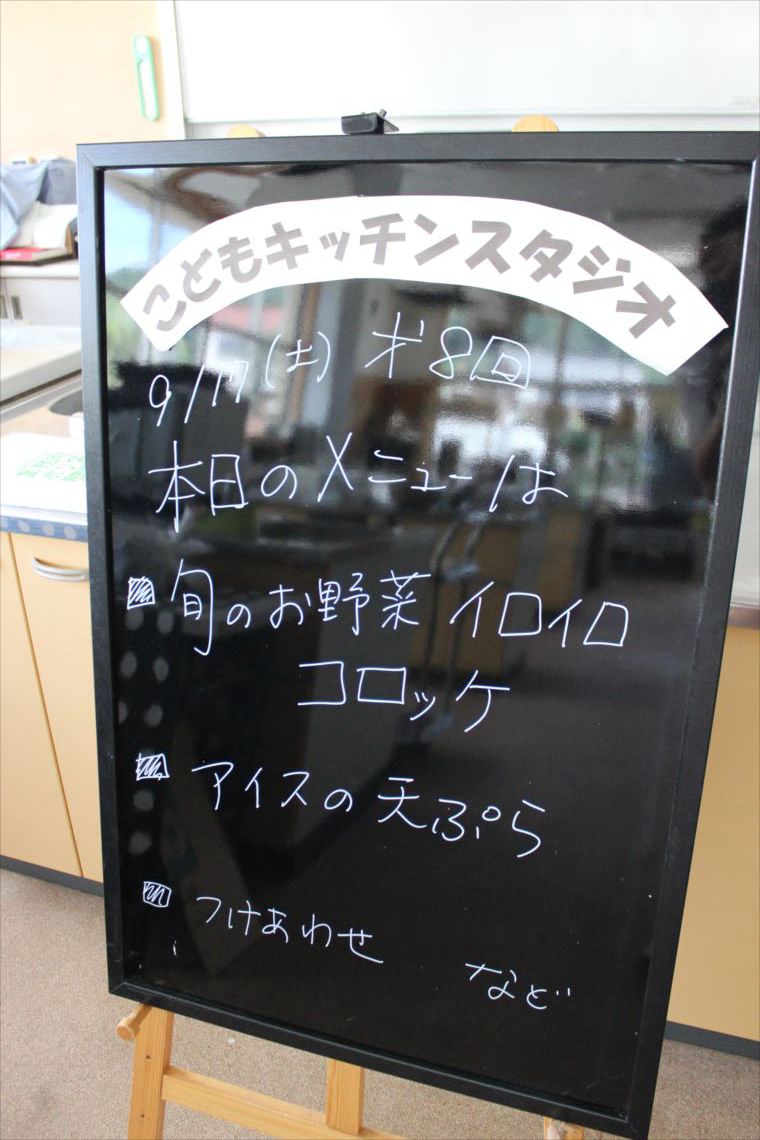 こどもキッチンスタジオ
9/17(土) 才8回
本日のメニューは
旬のお野菜 イロイロ
コロッケ
アイスの天ぷら
つけあわせ
など